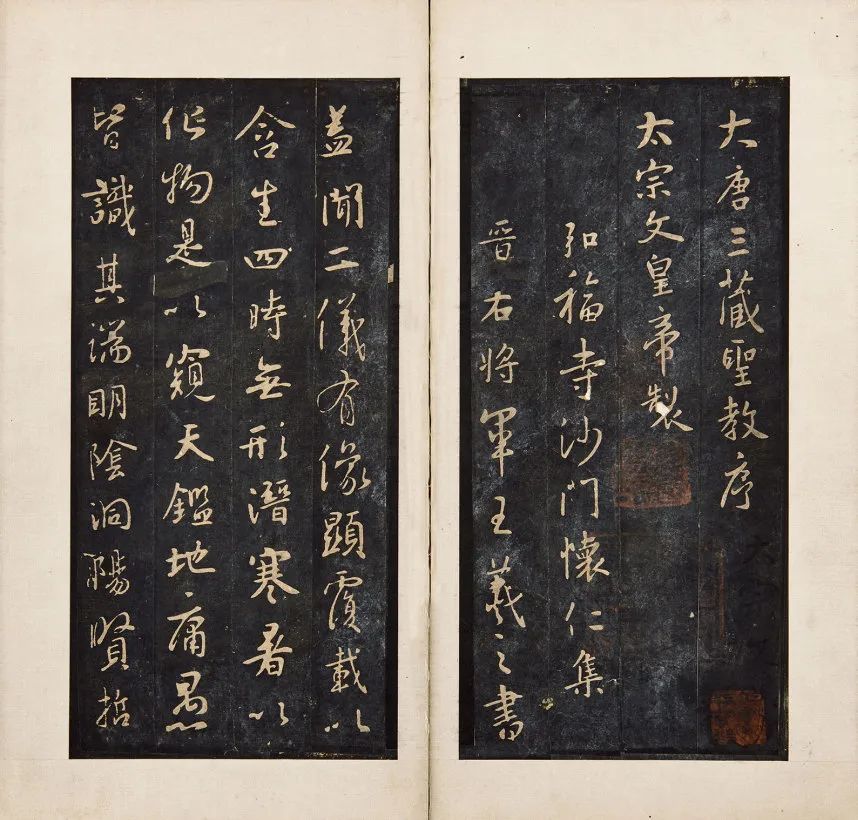 大唐三藏聖教序
太宗文皇帝製
弘福寺沙門懷仁集
晉右將軍王羲之書
蓋聞二儀有像顯覆載以
含生四時無形潛寒暑以
化物是以窺天鑑地庸愚
皆識其端明陰洞陽賢哲